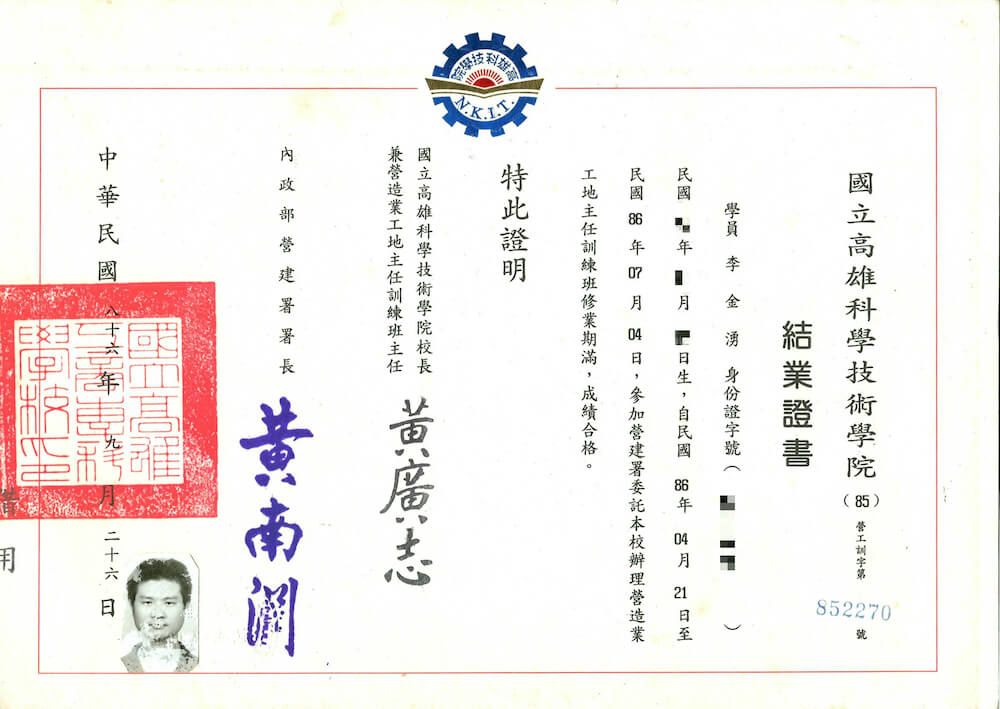 高雄科技學院
N.K.I.T.
國立高雄科學技術學院(85)營工訓字第852270號
結業證書
學員李金湧身份證字號( )
民國 年 月 日生,自民國86年04月21日至
民國86年07月04日,參加營建署委託本校辦理營造業
工地主任訓練班修業期滿,成績合格。
特此證明
國立高雄科學技術學院校長
兼營造業工地主任訓練班主任
黃廣志
內政部營建署署長
黃南淵
中華民國八十六年九月二十六日
用